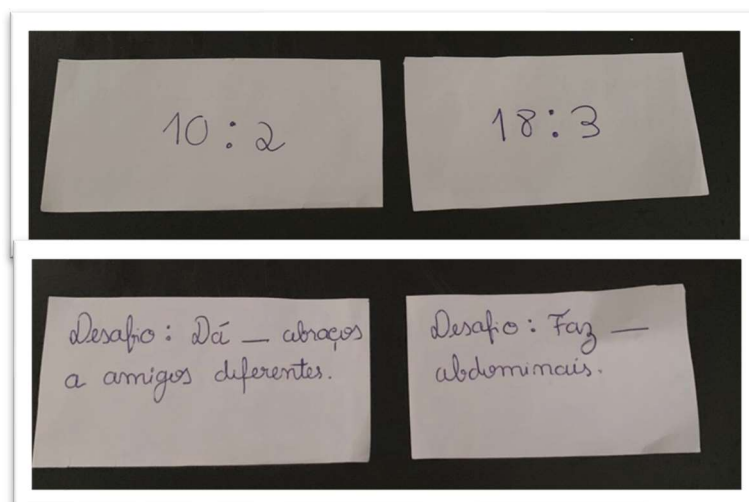 10 : 2
18 : 3
Desafio : Dá __ abraços
a amigos diferentes.
Desafio : Faz __
abdominais.